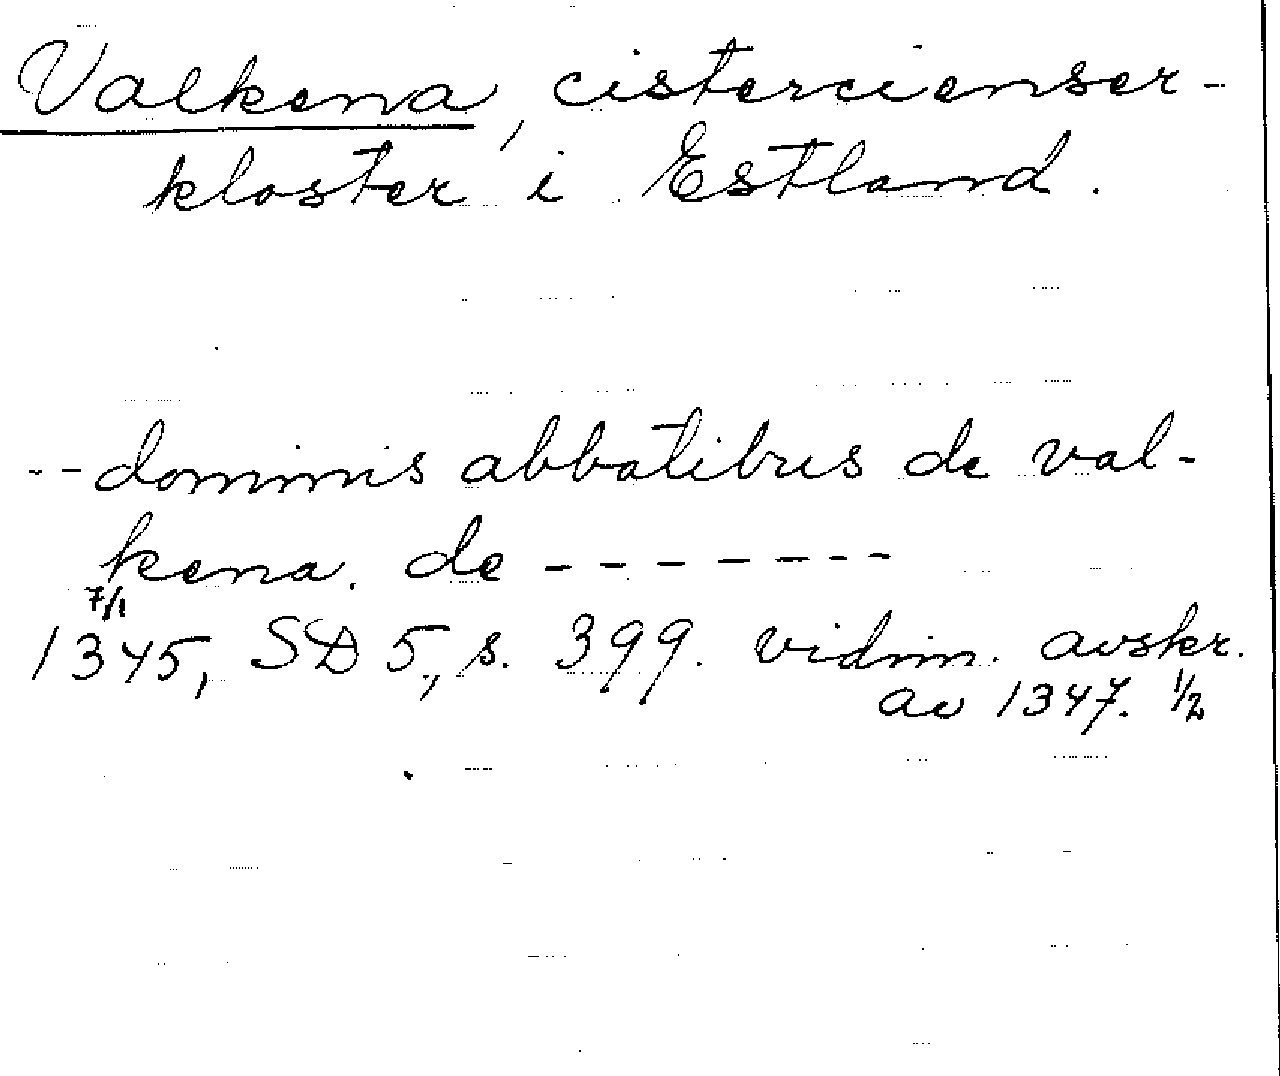 Valkena, cistercienser-
kloster i Estland.
--dominis abbatibus de val-
kena. de -------
7/1
1345, SD 5, s. 399. vidim. avskr.
av 1347. 1/2